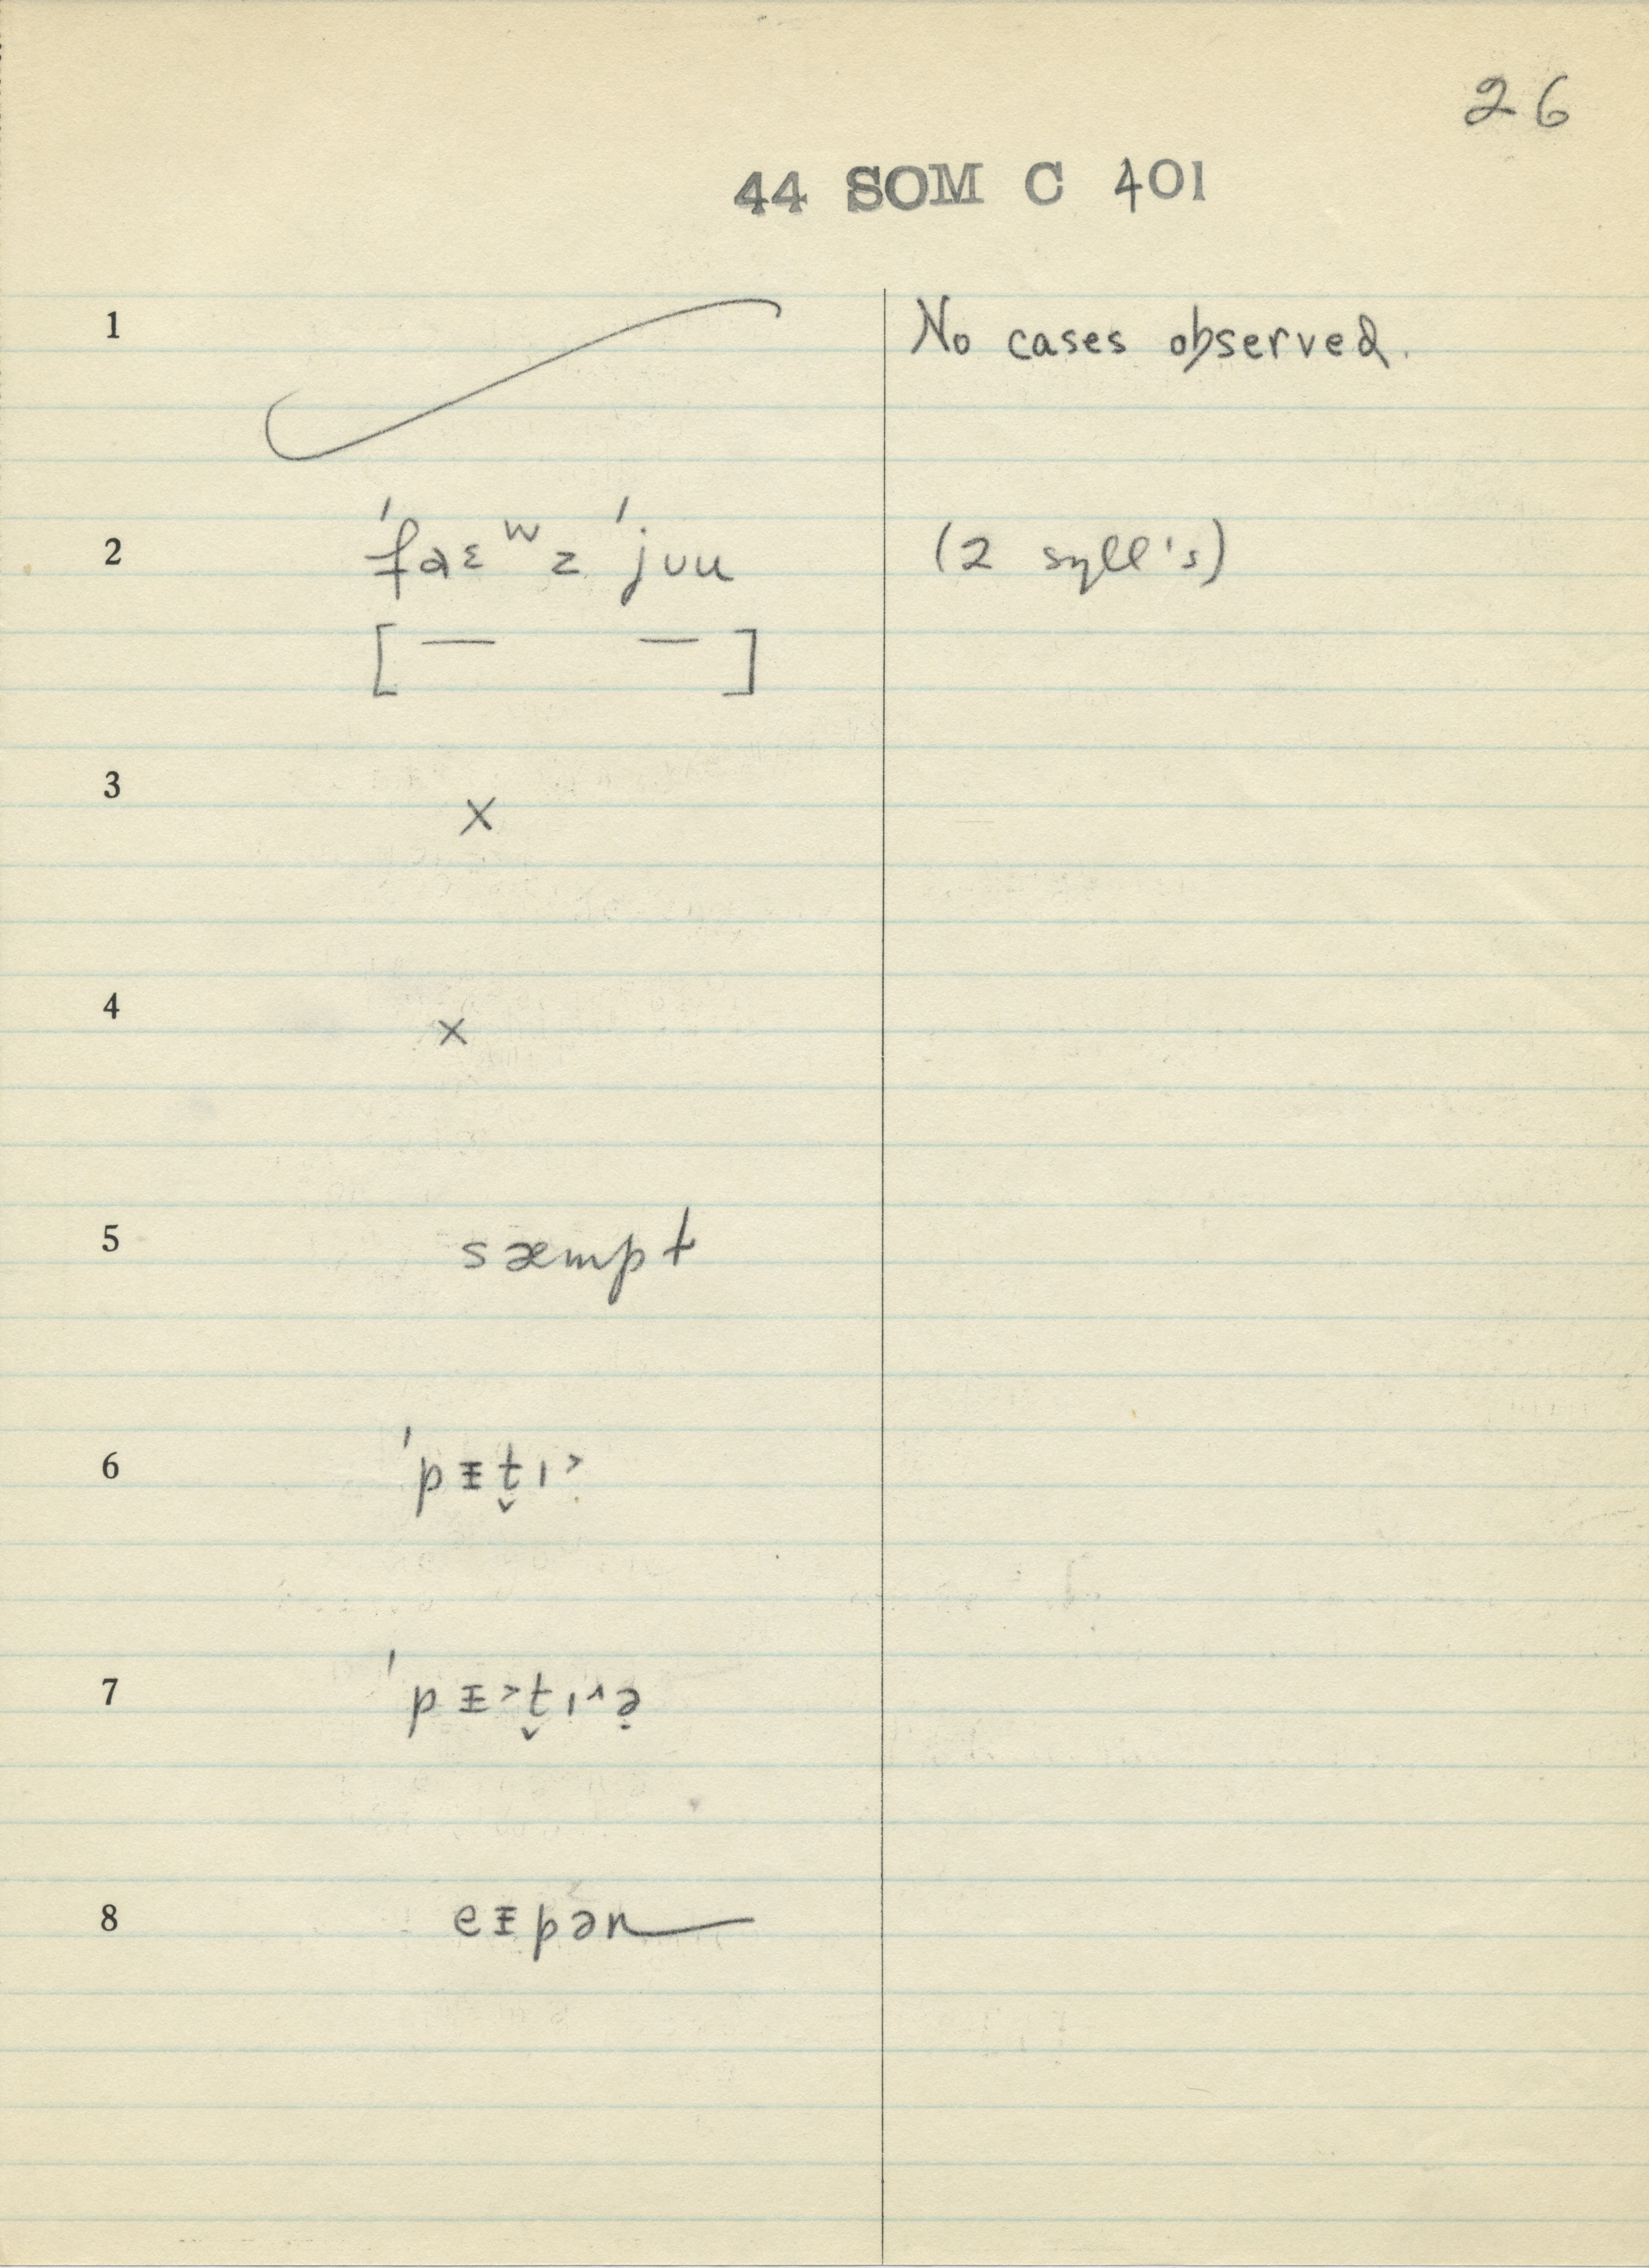 26
44 SOM C 401
1 No cases observed.
2 ˈfaɛʷz ˈjᴜu (2 syll's)
[ — — ]
3 ×
4 ×
5 sæmpt
6 ˈpᵻt̬ɪ˃
7 ˈpᵻ˃t̬ɪ˄ə̣
8 eᵻpən